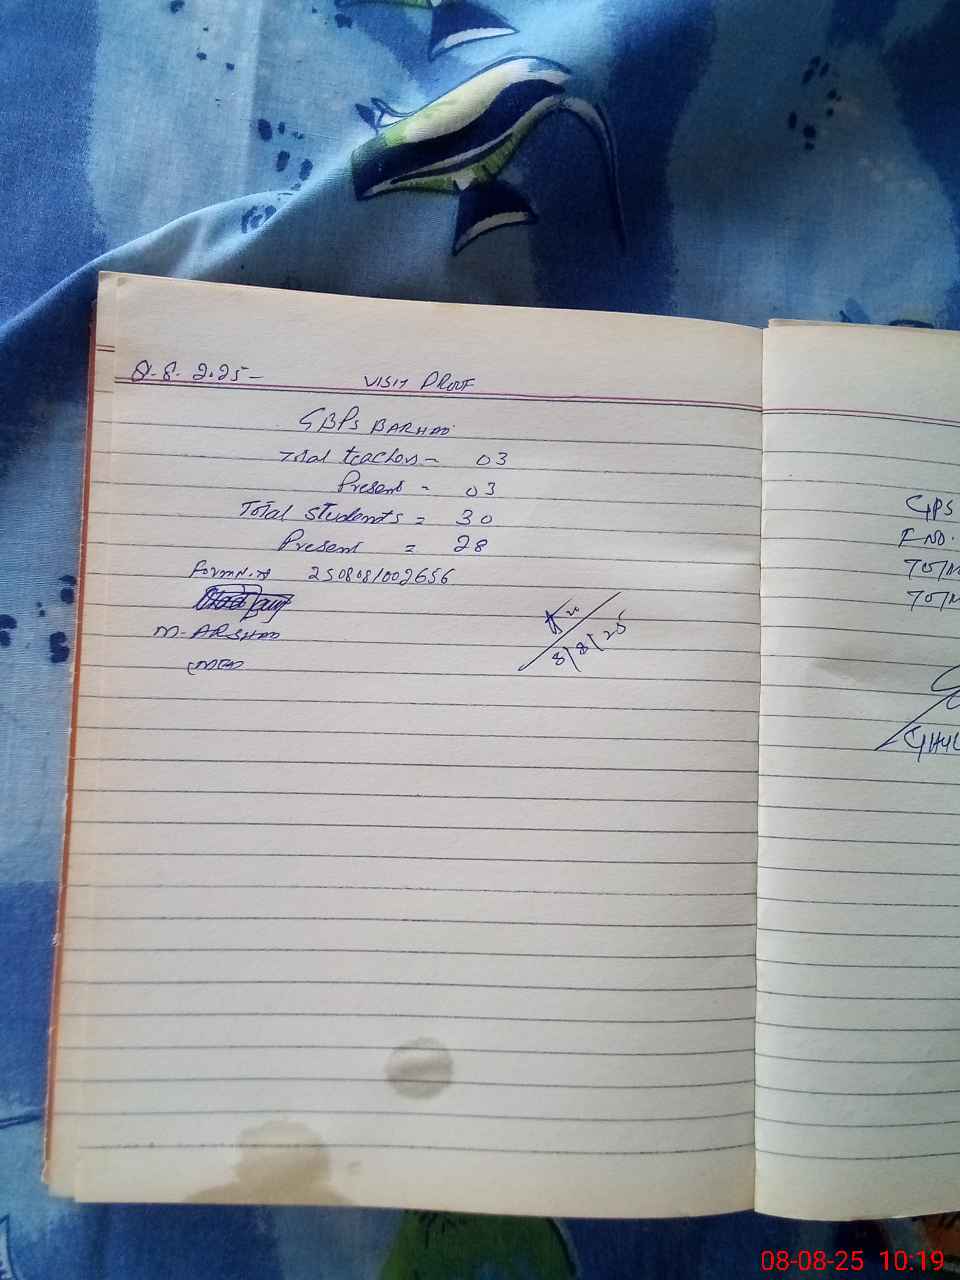 8.8.2.25- VISIT PROOF
GBPS BARHAD
Total teachers - 03
Present - 03
Total students = 30
Present = 28
Form N. 250808/002656
M. ARSHAD
8/8/25
GPS
F NO.
TOTA
TOTA
GHUL
08-08-25 10:19